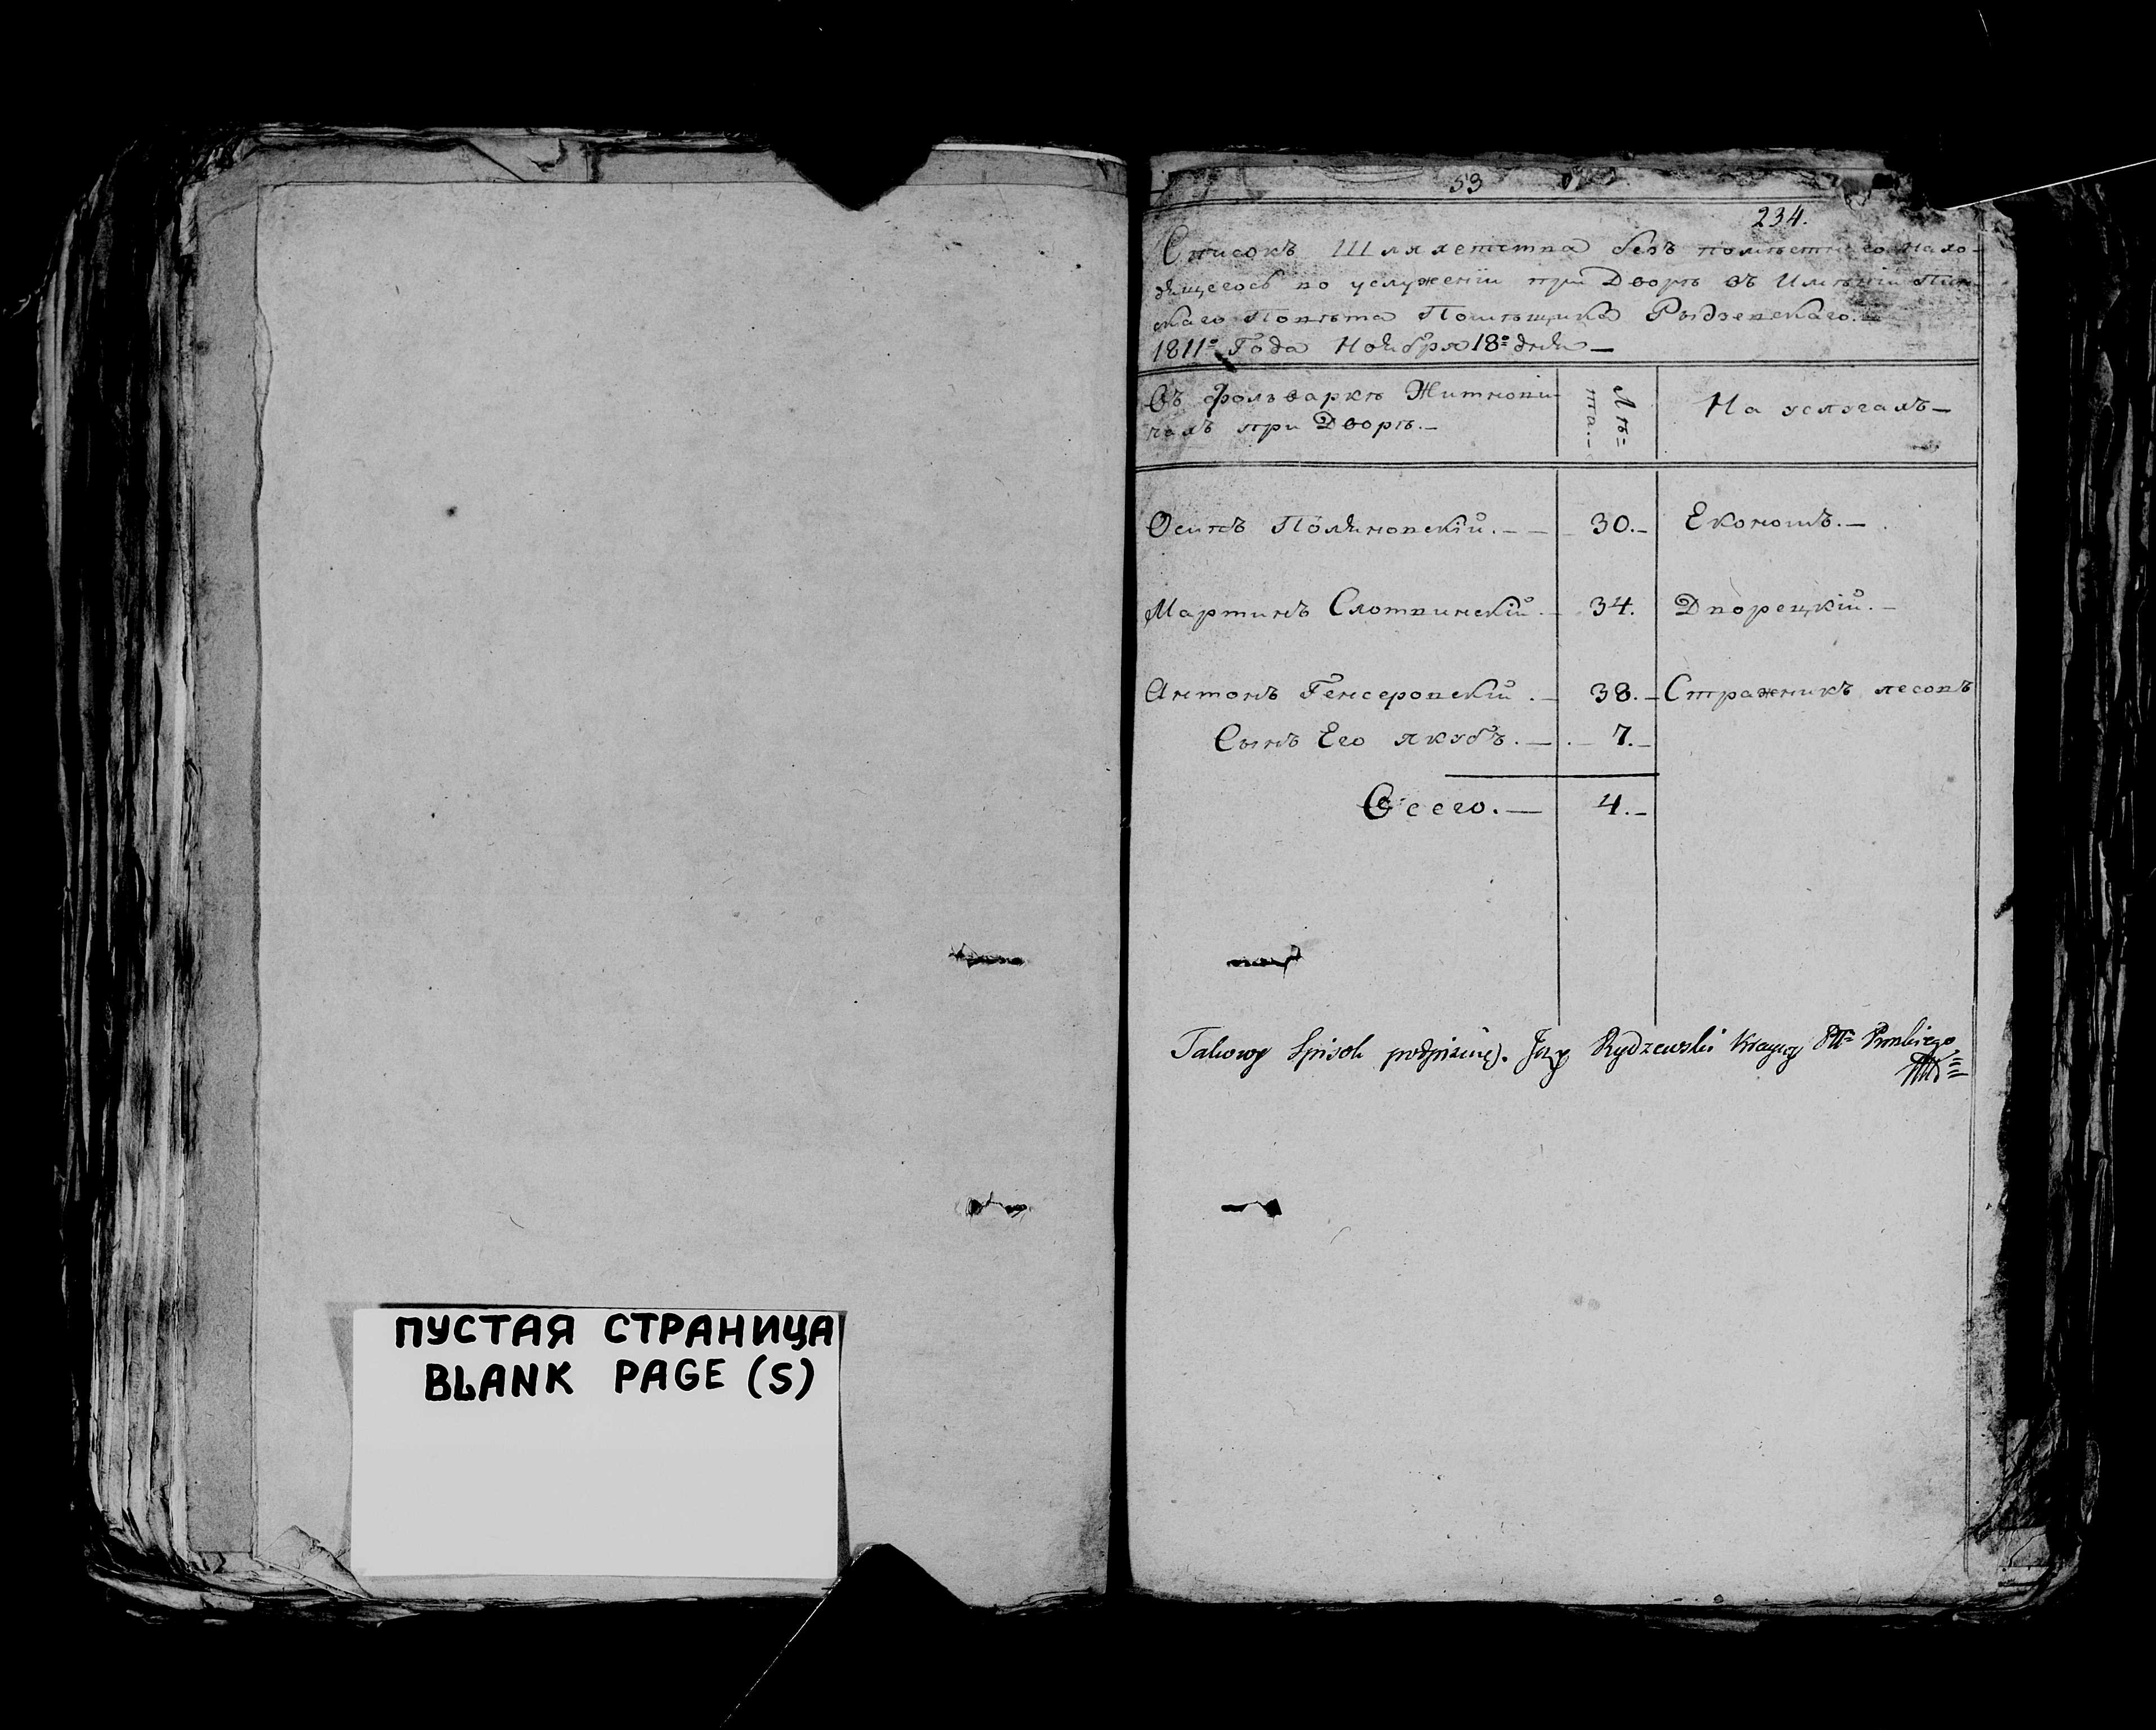 ПУСТАЯ СТРАНИЦА
BLANK PAGE (S)
53
234.
Списокъ Шляхетства безъ помѣстнаго нахо-
дящегось во услуженіи при Дворѣ въ Имѣніи Пин-
скаго Повѣта Помѣщика Рыдзевскаго.
1811º Года Ноября 18º дня —
Въ фольваркѣ Житнови-
чахъ при Дворѣ. —
Лѣ=
та. —
На услугахъ —
Осипъ Поляновскій. — — 30. — Економъ. —
Мартинъ Слотвинскій. — 34. Дворецкій. —
Антонъ Генсеровскій. — 38. — Стражникъ лесовъ
Сынъ Его якубъ. — 7. —
Всего. — 4. —
Takowy Spisok podpisuię. Jerzy Rydzewski Krayczy Ptu Pinskiego